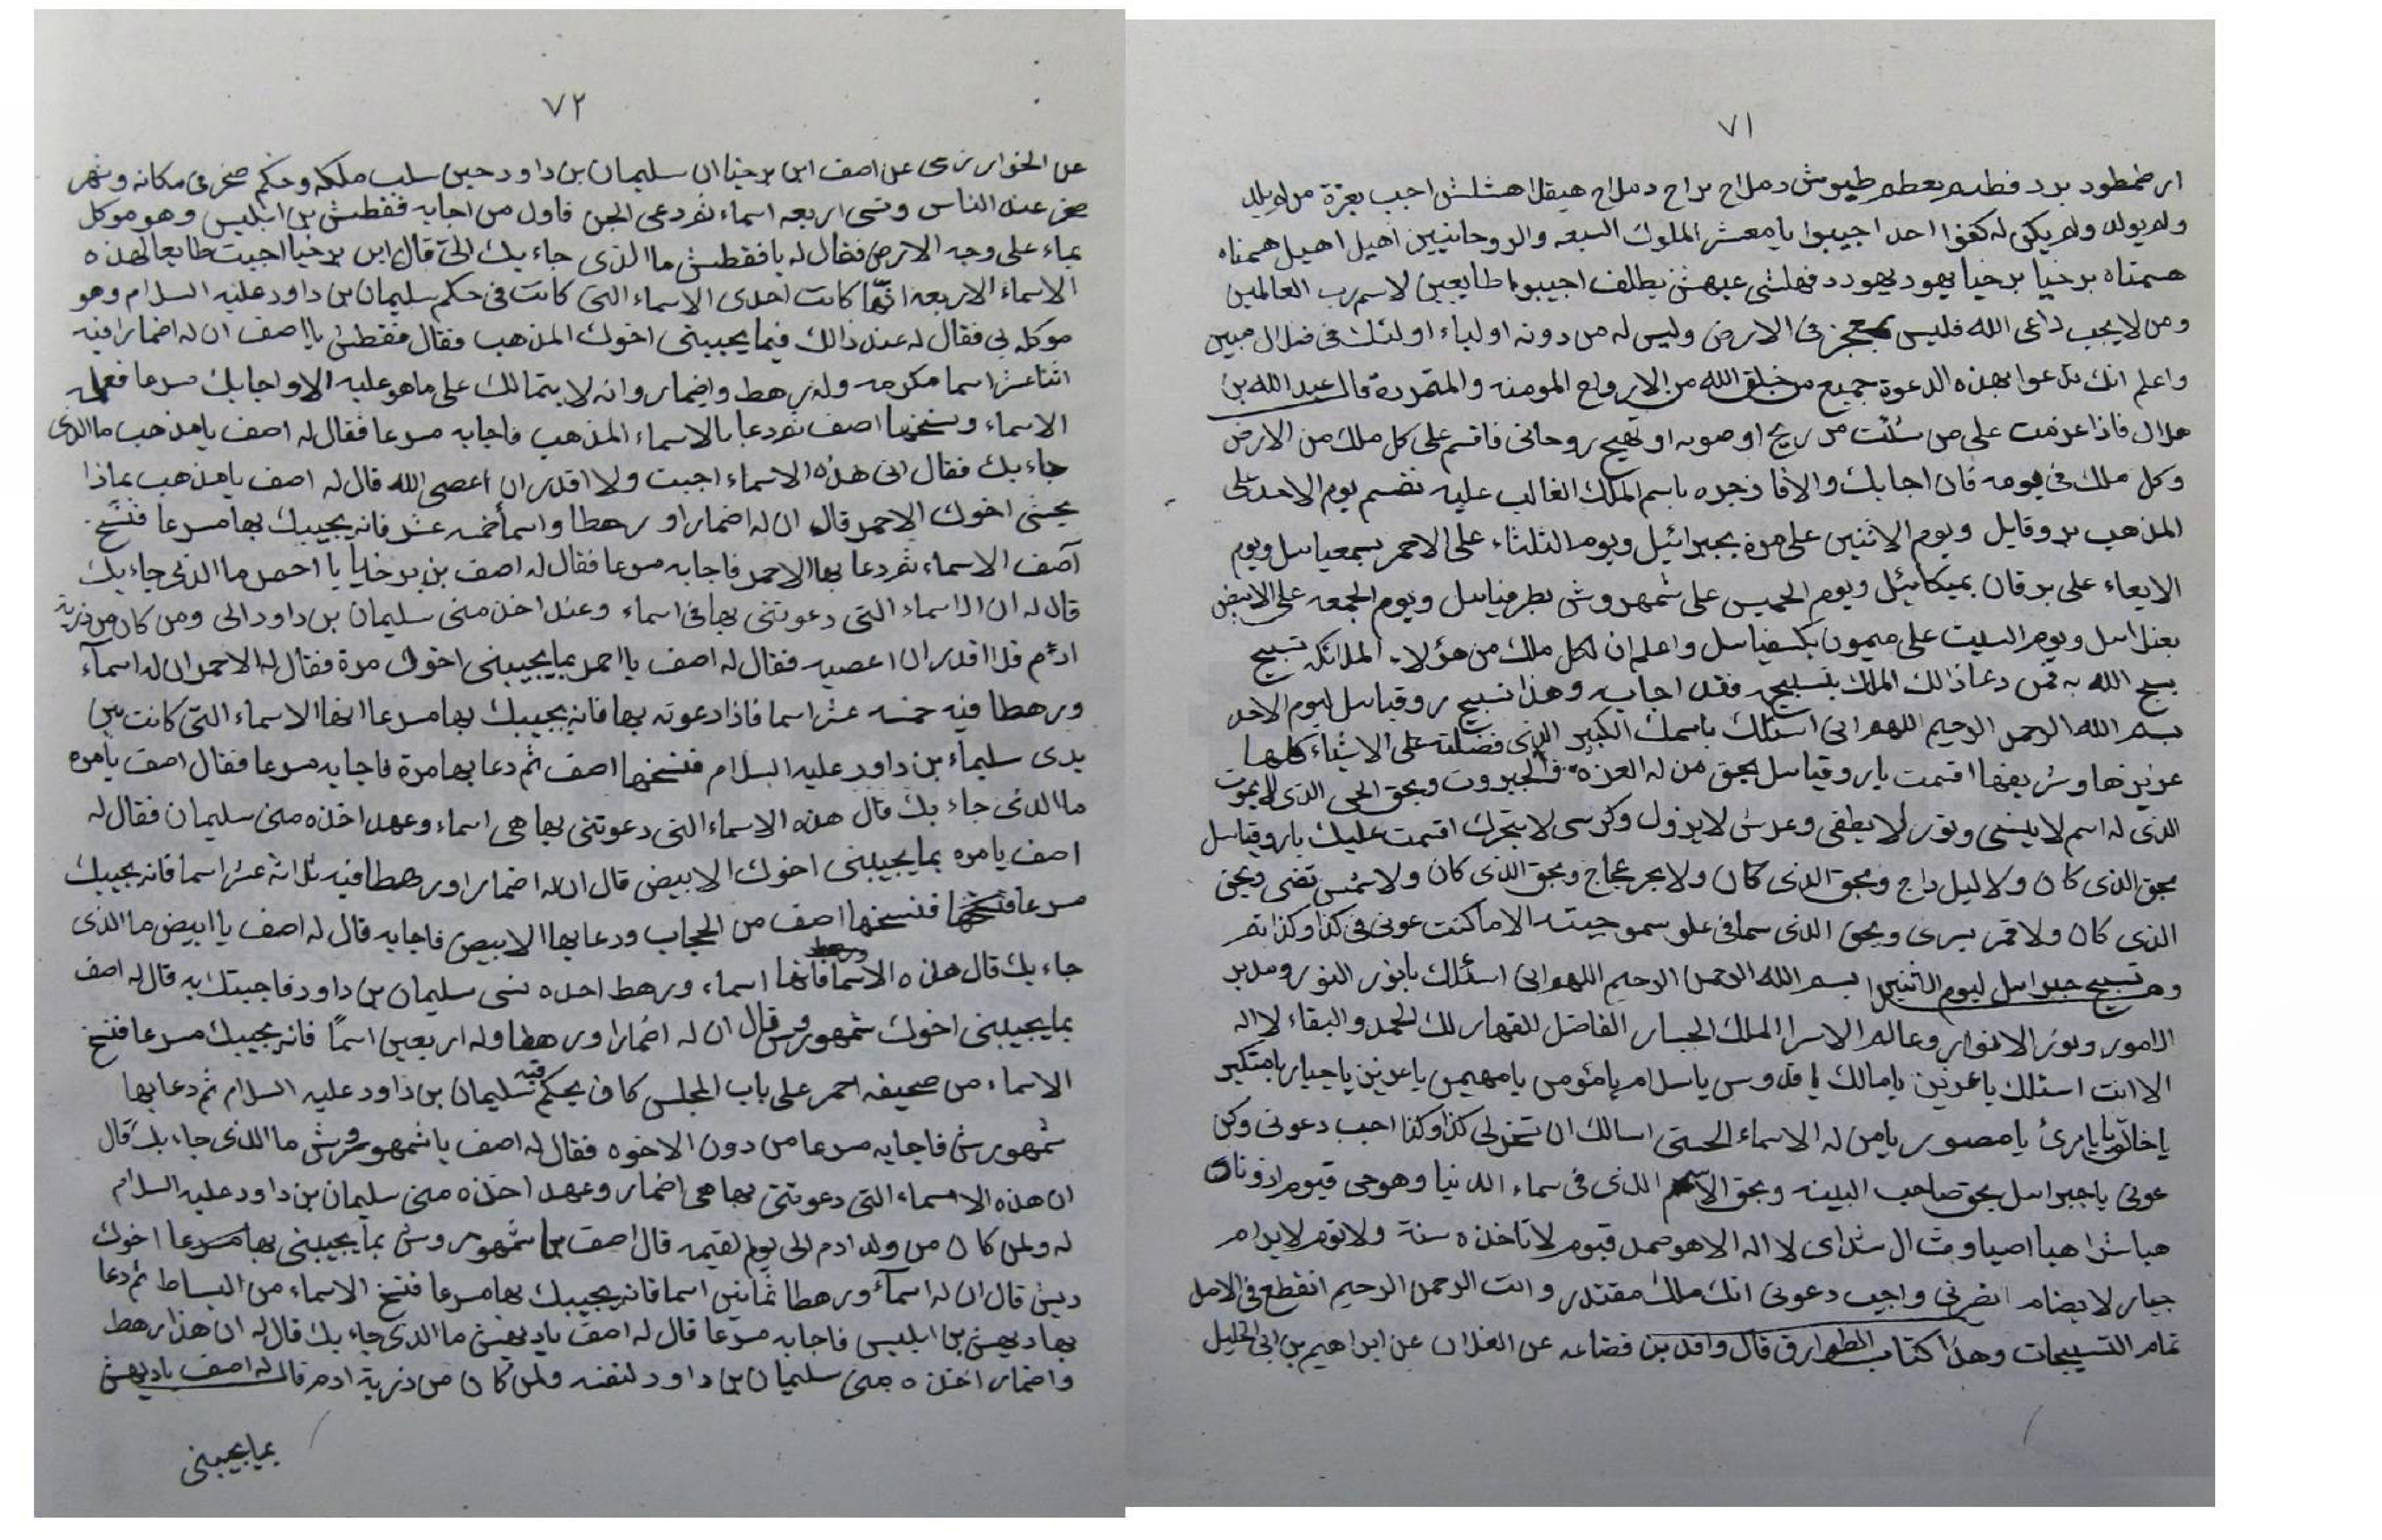 ٧١
ولم يولد ولم يكن له كفوا احد اجيبوا يا معشر الملوك السبعه والروحانيين اهيل اهيل همتاه
همتاه برخيا برخيا يهود يهود د فهلشى عيهش يطلف اجيبوا طايعين لاسم رب العالمين
ومن لا يجب داعى الله فليس بمعجز فى الارض وليس له من دونه اولياء اولئك فى ضلال مبين
واعلم انك تدعوا بهذه الدعوة جميع من خلق الله من الارواح المومنه والمتمردة قال عبد الله بن
هلال فاذا عزمت على من شئت من ريح او صوبه او تهيج روحانى فاقسم على كل ملك من الارض
وكل ملك فى يومه فان اجابك والا فازجره باسم الملك الغالب عليه تقسم يوم الاحد على
المذهب بروقايل ويوم الاثنين على مرة بجبرائيل ويوم الثلثاء على الاحمر بسمعياىىل ويوم
الاربعاء على برقان بميكائيل ويوم الخميس على شمهروش بطرفياىىل ويوم الجمعه على الابيض
بعنىاىىل ويوم السبت على ميمون بكسفياىىل واعلم ان لكل ملك من هؤلاء الملائكه تسبيح
يسبح الله به فمن دعا ذالك الملك بتسبيحه فقد اجابه وهذا تسبيح روقياىىل ليوم الاحد
بسم الله الرحمن الرحيم اللهم انى اسئلك باسمك الكبير الذى فضلته على الاشياء كلها
عزيزها وشريفها اقسمت يا روقياىىل بحق من له العزه والجبروت وبحق الحى الذى لا يموت
الذى له اسم لا ينسى ونور لا يطفى وعرش لا يزول وكرسى لا يتحرك اقسمت عليك يا روقياىىل
بحق الذى كان ولا ليل داج وبحق الذى كان ولا بحر عجاج وبحق الذى كان ولا شمس تضى وبحق
الذى كان ولا قمر يسرى وبحق الذى سما فى علو سموحيته الا ما كنت عونى فى كذا وكذا تم
وهو تسبيح جبراىىل ليوم الاثنين بسم الله الرحمن الرحيم اللهم انى اسئلك يا نور النور ومدبر
الامور ونور الانوار وعالم الاسرار الملك الجبار الفاضل القهار لك الحمد والبقاء لا اله
الا انت اسئلك يا عزيز يا مالك يا قدوس يا سلام يا مؤمن يا مهيمن يا عزيز يا جبار يا متكبر
يا خالق يا بارئ يا مصور يا من له الاسماء الحسنى اسالك ان تسخر لى كذا وكذا اجب دعوتى وكن
عونى يا جبراىىل بحق صاحب البينه وبحق الاسم الذى فى سماء الدنيا وهو حى قيوم ادوناى
هيا شراهيا اصباوث ال شداى لا اله الا هو صمد قيوم لا تاخذه سنة ولا نوم لا يرام
جبار لا يضام انصرنى واجب دعوتى انك ملك مقتدر وانت الرحمن الرحيم انقطع فى الاصل
تمام التسبيحات وهذا كتاب الطوارق قال واقد بن قضاعه عن الغزلان عن ابراهيم بن ابى الخليل
٧٢
عن الخوارزمى عن اصف ابن برخيا ان سليمان بن داود حين سلب ملكه وحكم صخر فى مكانه وشهر
صخر عند الناس ونسى اربعه اسماء ثم دعى الجن فاول من اجابه فقطش بن ابليس وهو موكل
بماء على وجه الارض فقال له يا فقطش ما الذى جاء بك الى قال ابن برخيا اجبت طايعا لهذه
الاسماء الاربعه انها كانت احدى الاسماء التى كانت فى حكم سليمان بن داود عليه السلام وهو
موكله بى فقال له عند ذالك فبما يجيبنى اخوك المذهب فقال فقطش يا اصف ان له اضمارا فيه
اثنا عشر اسما مكرمه وله رهط واضمار وانه لا يتمالك على ما هو عليه الا واجابك مسرعا فعلمه
الاسماء ونسخها اصف ثم دعا بالاسماء المذهب فاجابه مسرعا فقال له اصف يا مذهب ما الذى
جاء بك فقال الى هذه الاسماء اجبت ولا اقدر ان اعصى الله قال له اصف يا مذهب بماذا
يجيبنى اخوك الاحمر قال ان له اضمارا ورهطا واسما خمسه عشر فانه يجيبك بها مسرعا فنسخ
آصف الاسماء ثم دعا بها الاحمر فاجابه مسرعا فقال له اصف بن برخيا يا احمر ما الذى جاء بك
قال له ان الاسماء التى دعوتنى بها فى اسماء وعهد اخذ منى سليمان بن داود الى ومن كان من ذرية
ادم فلا اقدر ان اعصيه فقال له اصف يا احمر بما يجيبنى اخوك مرة فقال له الاحمر ان له اسمآء
ورهطا فيه خمسه عشر اسما فاذا دعوته بها فانه يجيبك بها مسرعا انها الاسماء التى كانت بين
يدى سليمان بن داود عليه السلام فنسخها اصف ثم دعا بها مرة فاجابه مسرعا فقال اصف يا مره
ما الذى جاء بك قال هذه الاسماء التى دعوتنى بها هى اسماء وعهد اخذه منى سليمان فقال له
اصف يا مره بما يجيبنى اخوك الابيض قال ان له اضمارا ورهطا فيه ثلاثة عشر اسما فانه يجيبك
مسرعا فنسخها اصف من الحجاب ودعا بها الابيض فاجابه قال له اصف يا ابيض ما الذى
جاء بك قال هذه الاسما فانها اسماء ورهط اخذه منى سليمان بن داود فاجبتك به قال له اصف
بما يجيبنى اخوك شمهورش قال ان له اضمارا ورهطا وله اربعين اسمًا فانه يجيبك مسرعا فنسخ
الاسماء من صحيفه احمر على باب المجلس كان يحكم فيه سليمان بن داود عليه السلام ثم دعا بها
شمهورش فاجابه مسرعا من دون الاخوه فقال له اصف يا شمهورش ما الذى جاء بك قال
ان هذه الاسماء التى دعوتنى بها هى اضمار وعهد اخذه منى سليمان بن داود عليه السلام
له ولمن كان من ولد ادم الى يوم القيمه قال اصف يا شمهوروش بما يجيبنى بها مسرعا اخوك
ديهش قال ان له اسمآء ورهطا ثمانين اسما فانه يجيبك بها مسرعا فنسخ الاسماء من البساط ثم دعا
بها ديهش بن ابليس فاجابه مسرعا قال له اصف يا ديهش ما الذى جاء بك قال له ان هذا رهط
واضمار اخذه منى سليمان بن داود لنفسه ولمن كان من ذرية ادم قال له اصف يا ديهش
بما يجيبنى